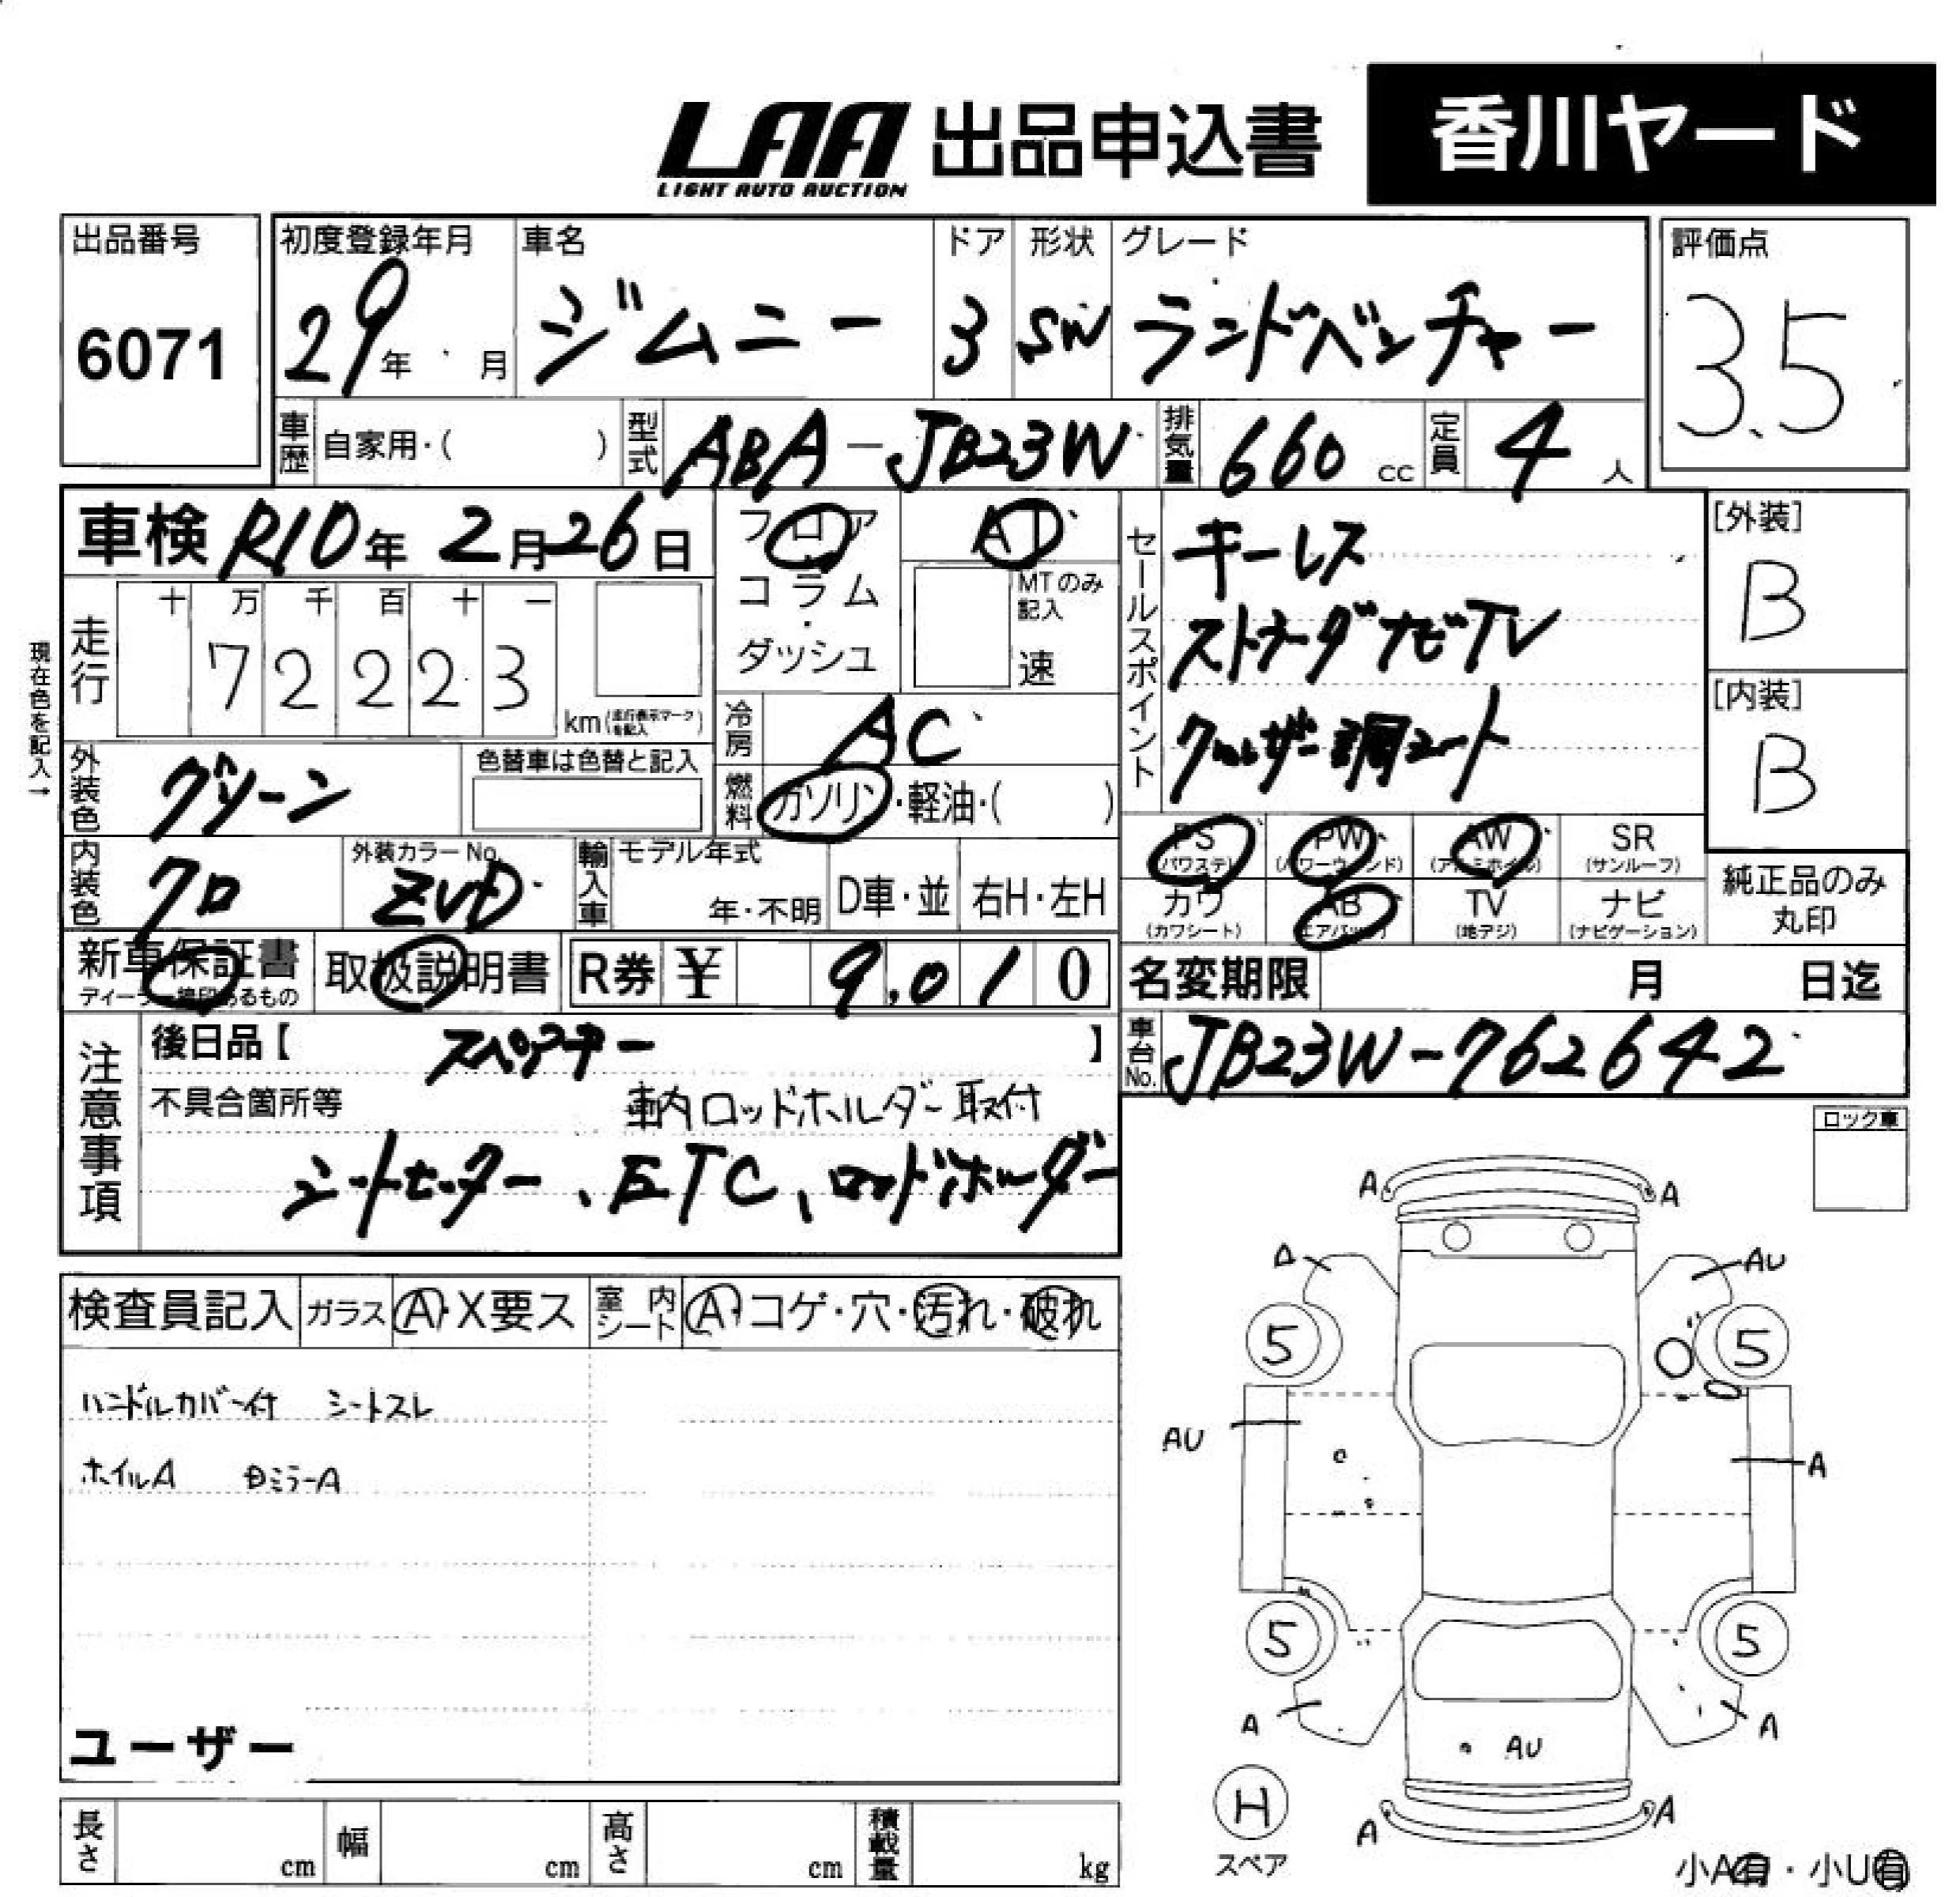 LAA 出品申込書 香川ヤード
LIGHT AUTO AUCTION
出品番号 初度登録年月 車名 ドア 形状 グレード 評価点
6071 29年 月 ジムニー 3 SW ランドベンチャー 3.5
車歴 自家用・( ) 型式 ABA-JB23W 排気量 660 cc 定員 4 人
車検 R10年 2月26日 フロア AT
コラム・ MTのみ記入
ダッシュ 速
走行 十 万 千 百 十 一
7 2 2 2 3
km(走行表示マークを記入)
現在色を記入→
冷房 AC
外装色 グリーン 色替車は色替と記入
燃料 ガソリン・軽油・( )
内装色 クロ 外装カラーNo. ZVD 輸入車 モデル年式 年・不明 D車・並 右H・左H
セールスポイント キーレス
ストラーダナビTV
クルーザー調シート
[外装]
B
[内装]
B
PS PW AW SR
(パワステ) (パワーウィンド) (アルミホイル) (サンルーフ)
カワ AB TV ナビ
(カワシート) (エアバッグ) (地デジ) (ナビゲーション)
純正品のみ
丸印
新車保証書 取扱説明書 R券 ¥ 9,010
ディーラー捺印あるもの
名変期限 月 日迄
車台No. JB23W-762642
注意事項 後日品【 スペアキー 】
不具合箇所等 車内ロッドホルダー取付
シートヒーター、ETC、ロッドホルダー
ロック車
検査員記入 ガラス A・X要ス 室内シート A・コゲ・穴・汚れ・破れ
ハンドルカバー付 シートスレ
ホイルA Bミラ-A
ユーザー
長さ cm 幅 cm 高さ cm 積載量 kg
A A
A AU
5 5
AU A
5 5
A A
AU
H
スペア
A A
小A有・小U有